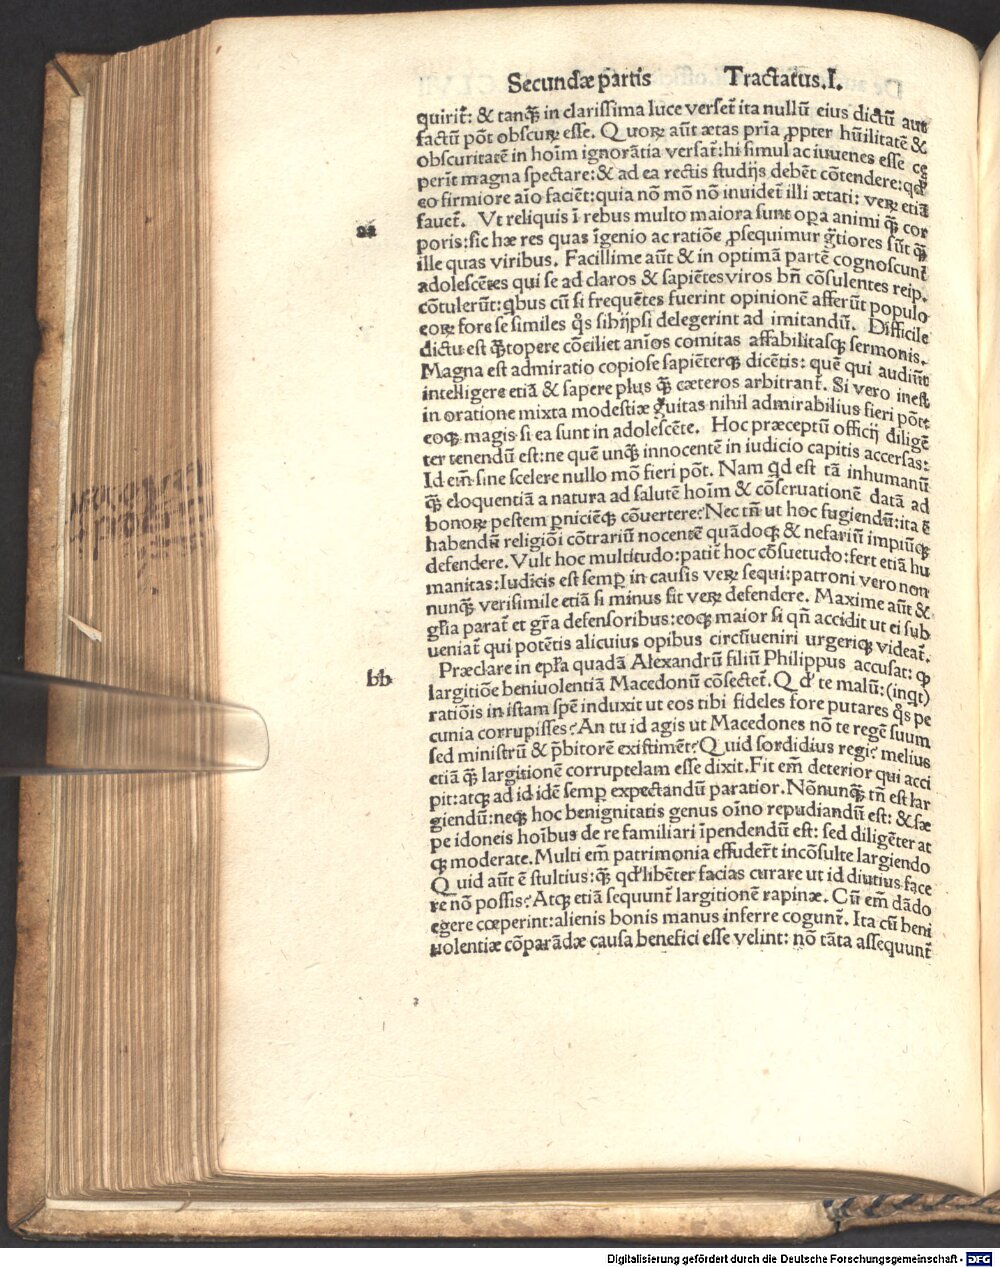 Secundæ partis Tractatus.I.
quirit᷑: & tanq̃ in clarissima luce verset᷑ ita nullũ eius dictũ aut
factũ põt obscuꝝ esse. Quoꝝ aũt ætas pria ꝓpter hũilitatẽ &
obscuritatẽ in hoĩm ignorãtia versat᷑: hi simul ac iuuenes esse cę
perĩt magna spectare: & ad ea rectis studijs debẽt cõtendere: qđ
eo firmiore aĩo faciẽt: quia nõ mõ nõ inuidet᷑ illi ætati: veꝝ etiã
fauet᷑. Vt reliquis ĩ rebus multo maiora sunt oꝑa animi q̃ cor
aa
poris: sic hæ res quas ĩgenio ac ratiõe ꝓsequimur gr̃tiores sũt q̃
ille quas viribus. Facillime aũt & in optimã partẽ cognoscunt᷑
adolescẽtes qui se ad claros & sapiẽtes viros bñ cõsulentes reip.
cõtulerũt: qbus cũ si frequẽtes fuerint opinionẽ afferũt populo
eoꝝ fore se similes q̃s sibijpsi delegerint ad imitandũ. Difficile
dictu est q̃topere cõciliet anĩos comitas affabilitasq; sermonis.
Magna est admiratio copiose sapiẽterq; dicẽtis: quẽ qui audiũt
intelligere etiã & sapere plus q̃ cæteros arbitrant᷑. Si vero inest
in oratione mixta modestiæ gͣuitas nihil admirabilius fieri põt:
eoq; magis si ea sunt in adolescẽte. Hoc præceptũ officij diligẽ
ter tenendũ est: ne quẽ unq̃ innocentẽ in iudicio capitis accersas:
Id em̃ sine scelere nullo mõ fieri põt. Nam qd est tã inhumanũ
q̃ eloquentiã a natura ad salutẽ hoĩm & cõseruationẽ datã ad
bonoꝝ pestem ꝑniciẽq; cõuertere? Nec tñ ut hoc fugiendũ: ita ẽ
habendũ religiõi cõtrariũ nocentẽ quãdoq; & nefariũ impiũq;
defendere. Vult hoc multitudo: patit᷑ hoc cõsuetudo: fert etiã hu
manitas: Iudicis est semꝑ in causis veꝝ sequi: patroni vero non
nunq̃ verisimile etiã si minus sit veꝝ defendere. Maxime aũt &
gl̃ia parat᷑ et gr̃a defensoribus: eoq; maior si qñ accidit ut ei sub
ueniat᷑ qui potẽtis alicuius opibus circũueniri urgeriq; videat᷑.
bb
Præclare in epl̃a quadã Alexandrũ filiũ Philippus accusat: ꝙ
largitiõe beniuolentiã Macedonũ cõsectet᷑. Qđ te malũ: (inqt)
ratiõis in istam spẽ induxit ut eos tibi fideles fore putares q̃s pe
cunia corrupisses? An tu id agis ut Macedones nõ te regẽ suum
sed ministrũ & p̃bitorẽ existimẽt? Quid sordidius regi? melius
etiã q̃ largitionẽ corruptelam esse dixit. Fit em̃ deterior qui acci
pit: atq; ad id idẽ semꝑ expectandũ paratior. Nõnunq̃ tñ est lar
giendũ: neq; hoc benignitatis genus oĩno repudiandũ est: & sæ
pe idoneis hoĩbus de re familiari ĩpendendũ est: sed diligẽter at
q; moderate. Multi em̃ patrimonia effuder̃t incõsulte largiendo
Quid aũt ẽ stultius: q̃ qđ libẽter facias curare ut id diutius face
re nõ possis? Atq; etiã sequunt᷑ largitionẽ rapinæ. Cũ em̃ dãdo
egere cœperint: alienis bonis manus inferre cogunt᷑. Ita cũ beni
uolentiæ cõparãdæ causa benefici esse velint: nõ tãta assequunt᷑
Digitalisierung gefördert durch die Deutsche Forschungsgemeinschaft - DFG